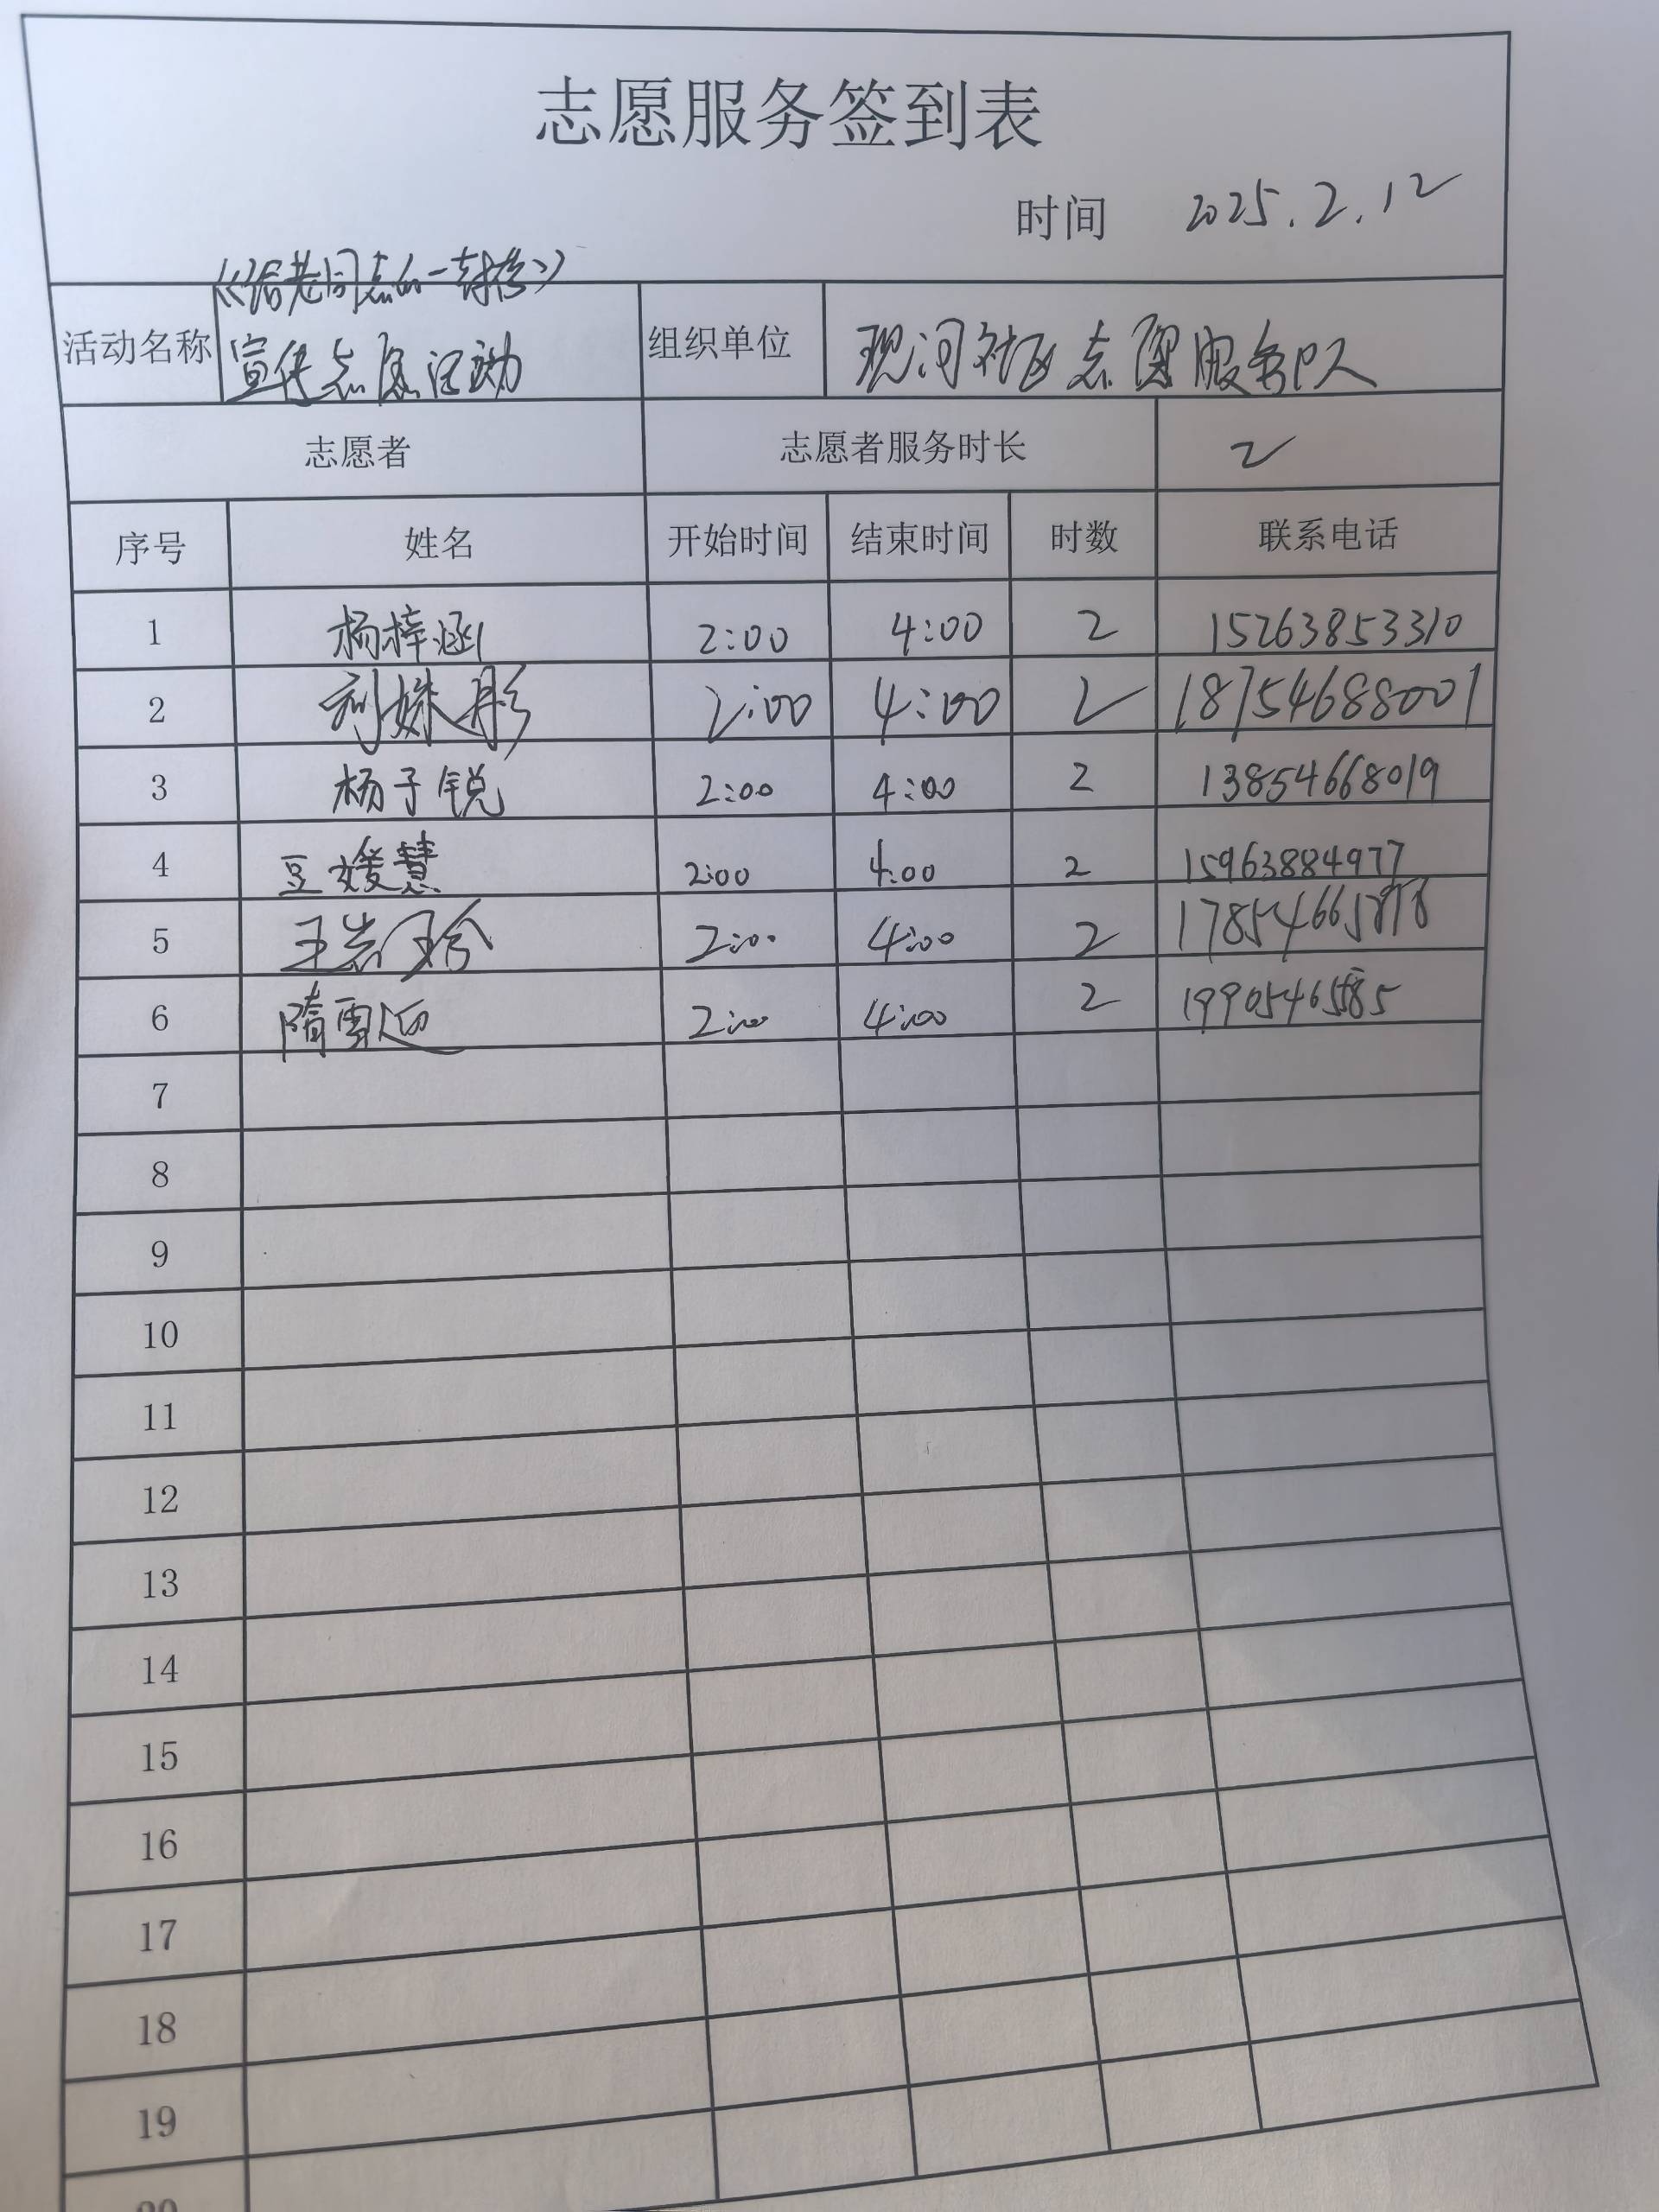 志愿服务签到表
时间 2025.2.12
《给老同志的一封信》
活动名称 宣传志愿活动 组织单位 现河社区志愿服务队
志愿者 志愿者服务时长 2
序号 姓名 开始时间 结束时间 时数 联系电话
1 杨梓涵 2:00 4:00 2 15263853310
2 刘姝彤 2:00 4:00 2 18754688001
3 杨子锐 2:00 4:00 2 13854668019
4 豆媛慧 2:00 4:00 2 15963884977
5 2:00 4:00 2
6 隋雪迎 2:00 4:00 2
7
8
9
10
11
12
13
14
15
16
17
18
19
20